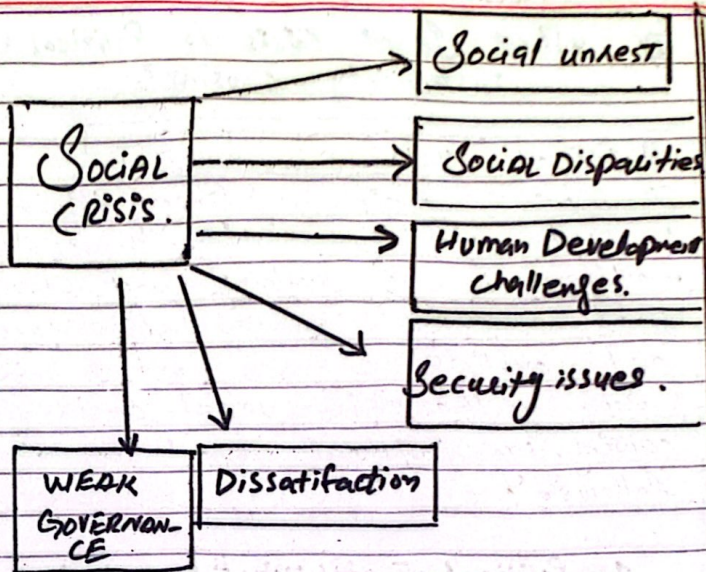 Social unrest
SOCIAL
CRISIS.
Social Disparities
Human Development
challenges.
Security issues.
WEAK
GOVERNAN-
CE
Dissatifaction